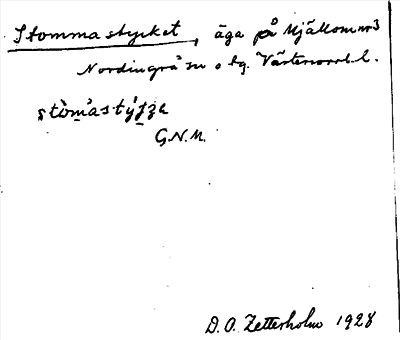 Stommastycket, äga på Mjällom nr 3
Nordingrå sn o tg. Västernorrl. l.
G.N.M.
D.O. Zetterholm 1928